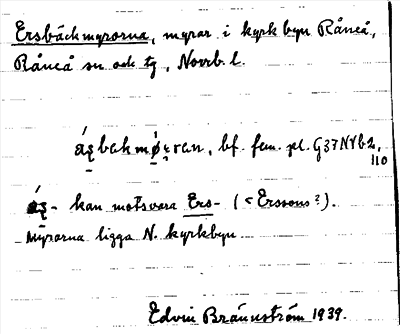 Ersbäckmyrorna, myrar i kyrkbyn Råneå,
Råneå sn. och tg, Norrb. l.
bf. fem. pl. G37NYb2,
110
kan motsvara Ers- (< Erssons?).
Myrorna ligga N. kyrkbyn
Edvin Brännström 1939.